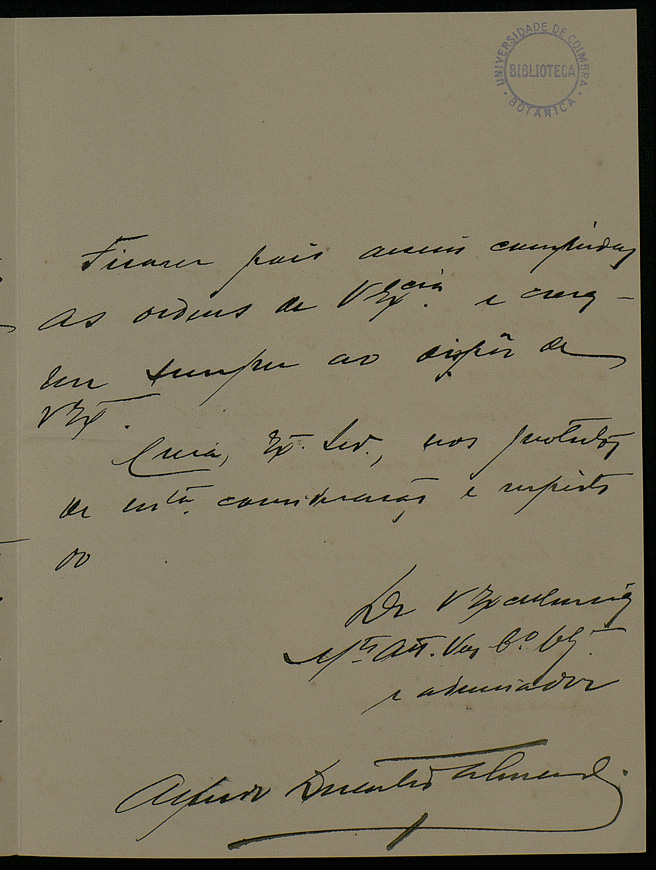 UNIVERSIDADE DE COIMBRA
BIBLIOTECA
BOTANICA
Ficarei pois assim cumpridas
As ordens de V Ex.cia e
sempre ao dispôr de
V Ex.
Creia, Ex. Snr., nos protestos
de consideração e respeito
do
De V Excellencia
Mto Att. Vor e Obg.
e admirador
Alfredo